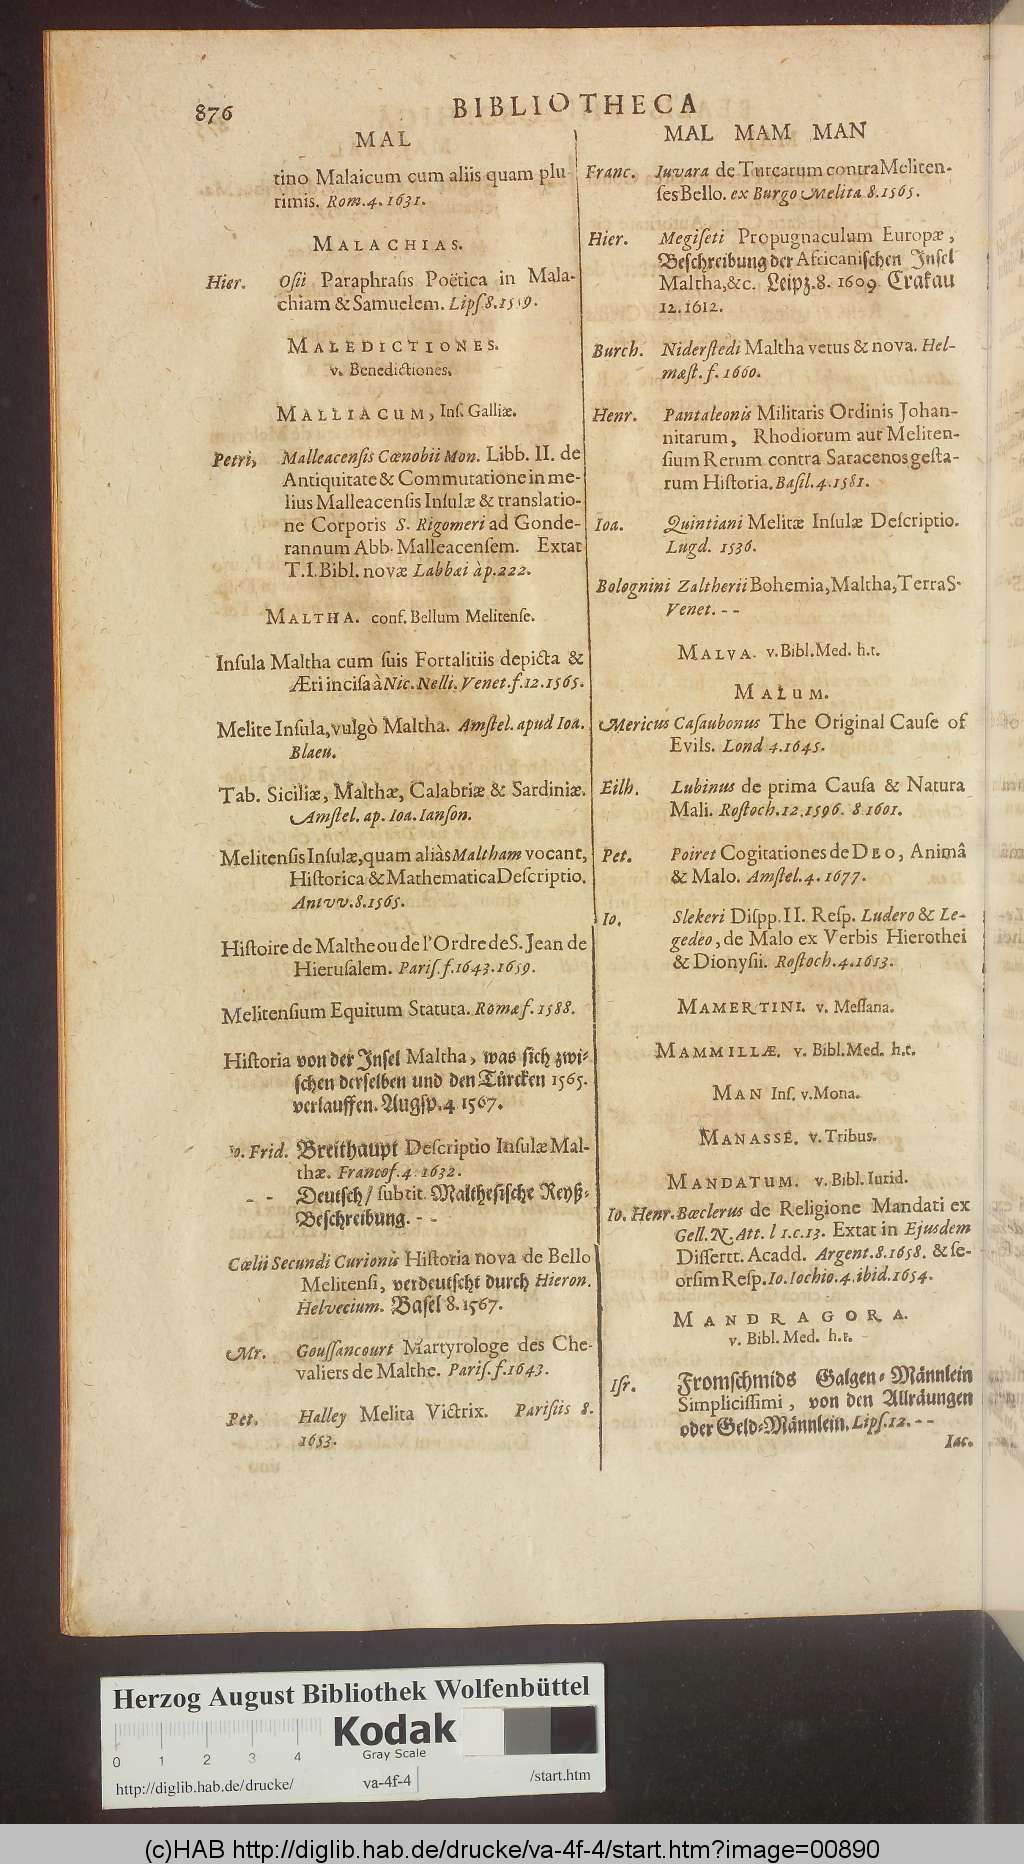 876
BIBLIOTHECA
MAL
tino Malaicum cum aliis quam plu-
rimis. Rom. 4. 1631.
MALACHIAS.
Hier. Osii Paraphrasis Poëtica in Mala-
chiam & Samuelem. Lips. 8. 1559.
MALEDICTIONES.
v. Benedictiones.
MALLIACUM, Ins. Galliæ.
Petri, Malleacensis Cœnobii Mon. Libb. II. de
Antiquitate & Commutatione in me-
lius Malleacensis Insulæ & translatio-
ne Corporis S. Rigomeri ad Gonde-
rannum Abb. Malleacensem. Extat
T. I. Bibl. novæ Labbæi à p. 222.
MALTHA. conf. Bellum Melitense.
Insula Maltha cum suis Fortalitiis depicta &
Æri incisa à Nic. Nelli. Venet. f. 12. 1565.
Melite Insula, vulgò Maltha. Amstel. apud Ioa.
Blaeu.
Tab. Siciliæ, Malthæ, Calabriæ & Sardiniæ.
Amstel. ap. Ioa. Ianson.
Melitensis Insulæ, quam aliàs Maltham vocant,
Historica & Mathematica Descriptio.
Antvv. 8. 1565.
Histoire de Malthe ou de l'Ordre de S. Jean de
Hierusalem. Paris. f. 1643. 1659.
Melitensium Equitum Statuta. Romæ f. 1588.
Historia von der Insel Maltha, was sich zwi-
schen derselben und den Türcken 1565.
verlauffen. Augsp. 4 1567.
Io. Frid. Breithaupt Descriptio Insulæ Mal-
thæ. Francof. 4. 1632.
- - Deutsch / sub tit. Malthesische Reyß-
Beschreibung. - -
Cœlii Secundi Curionis Historia nova de Bello
Melitensi, verdeutscht durch Hieron.
Helvecium. Basel 8. 1567.
Mr. Goussancourt Martyrologe des Che-
valiers de Malthe. Paris. f. 1643.
Pet. Halley Melita Victrix. Parisiis 8.
1653.
MAL MAM MAN
Franc. Iuvara de Turcarum contra Meliten-
ses Bello. ex Burgo Melita 8. 1565.
Hier. Megiseri Propugnaculum Europæ,
Beschreibung der Africanischen Insel
Maltha, &c. Leipz. 8. 1609 Crakau
12. 1612.
Burch. Niderstedi Maltha vetus & nova. Hel-
mæst. f. 1660.
Henr. Pantaleonis Militaris Ordinis Johan-
nitarum, Rhodiorum aut Meliten-
sium Rerum contra Saracenos gesta-
rum Historia. Basil. 4. 1581.
Ioa. Quintiani Melitæ Insulæ Descriptio.
Lugd. 1536.
Bolognini Zaltherii Bohemia, Maltha, Terra S.
Venet. - -
MALVA. v. Bibl. Med. h. t.
MALUM.
Mericus Casaubonus The Original Cause of
Evils. Lond 4. 1645.
Eilh. Lubinus de prima Causa & Natura
Mali. Rostoch. 12. 1596. 8 1601.
Pet. Poiret Cogitationes de DEO, Animâ
& Malo. Amstel. 4. 1677.
Io. Slekeri Dispp. II. Resp. Ludero & Le-
gedeo, de Malo ex Verbis Hierothei
& Dionysii. Rostoch. 4. 1613.
MAMERTINI. v. Messana.
MAMMILLÆ. v. Bibl. Med. h. t.
MAN Ins. v. Mona.
MANASSE. v. Tribus.
MANDATUM. v. Bibl. Iurid.
Io. Henr. Bœclerus de Religione Mandati ex
Gell. N. Att. l 1. c. 13. Extat in Ejusdem
Dissertt. Acadd. Argent. 8. 1658. & se-
orsim Resp. Io. Iochio. 4. ibid. 1654.
MANDRAGORA.
v. Bibl. Med. h. t.
Isr. Fromschmids Galgen-Männlein
Simplicissimi, von den Allräungen
oder Geld-Männlein. Lips. 12. - -
Iac.
Herzog August Bibliothek Wolfenbüttel
Kodak
Gray Scale
0 1 2 3 4
http://diglib.hab.de/drucke/ va-4f-4 /start.htm
(c)HAB http://diglib.hab.de/drucke/va-4f-4/start.htm?image=00890